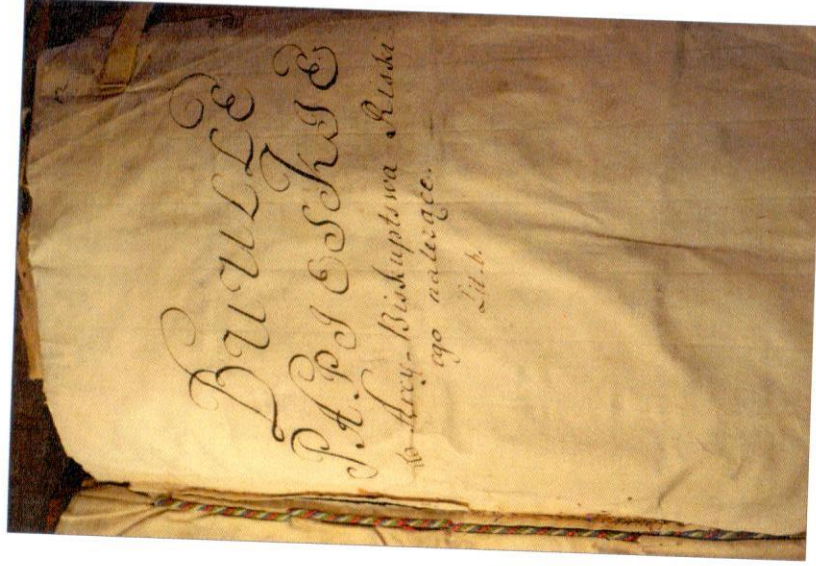 BUULLE
PAPIESKIE
do Arcy-Biskuptswa Ruski
ego należące.
Lit. b.